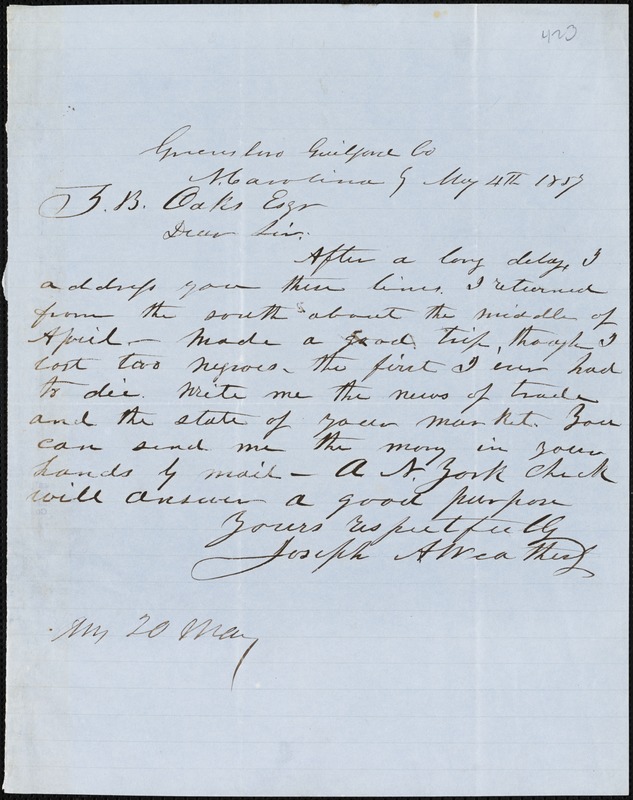 423
Greensboro Guilford Co
N. Carolina } May 4th 1857
Z. B. Oakes Esqr
Dear Sir.
After a long delay, I
address you these lines. I returned
from the south about the middle of
April. – Made a good trip, though I
lost two negroes. the first I ever had
to die. Write me the news of trade
and the state of your market. You
can send me the mony in your
hands by mail – A N. York check
will answer a good purpose
Yours respectfully
Joseph A Weatherly
Ans 20 May